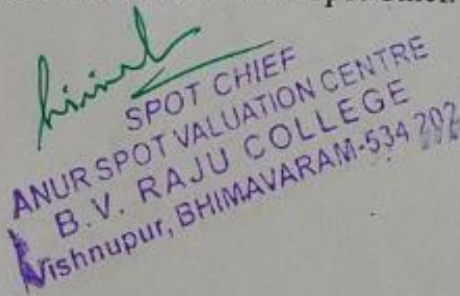 SPOT CHIEF
ANUR SPOT VALUATION CENTRE
B.V. RAJU COLLEGE
Vishnupur, BHIMAVARAM-534 202